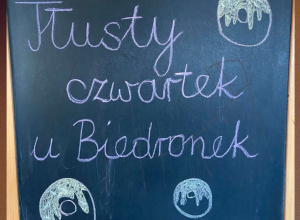 Tłusty
czwartek
u Biedronek